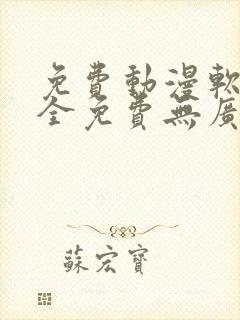 免費動漫軟
全免費無廣
蘇宏寶